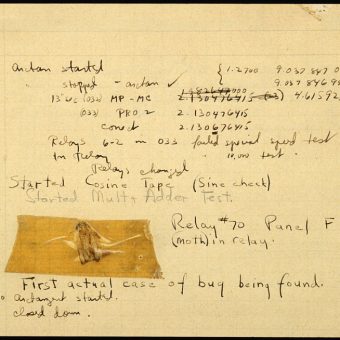 arctan started
" stopped - arctan ✓
{ 1.2700 9.037 847 0
9.037 846 95
13" (032) MP - MC 2.130476415 4.61592
(033) PRO 2 2.130476415
correct 2.130676415
Relays 6-2 in 033 failed special speed test
In Relay " 10,000 test .
Relays changed
Started Cosine Tape (Sine check)
Started Mult + Adder Test.
Relay #70 Panel F
(moth) in relay.
First actual case of bug being found.
arctangent started.
closed down.